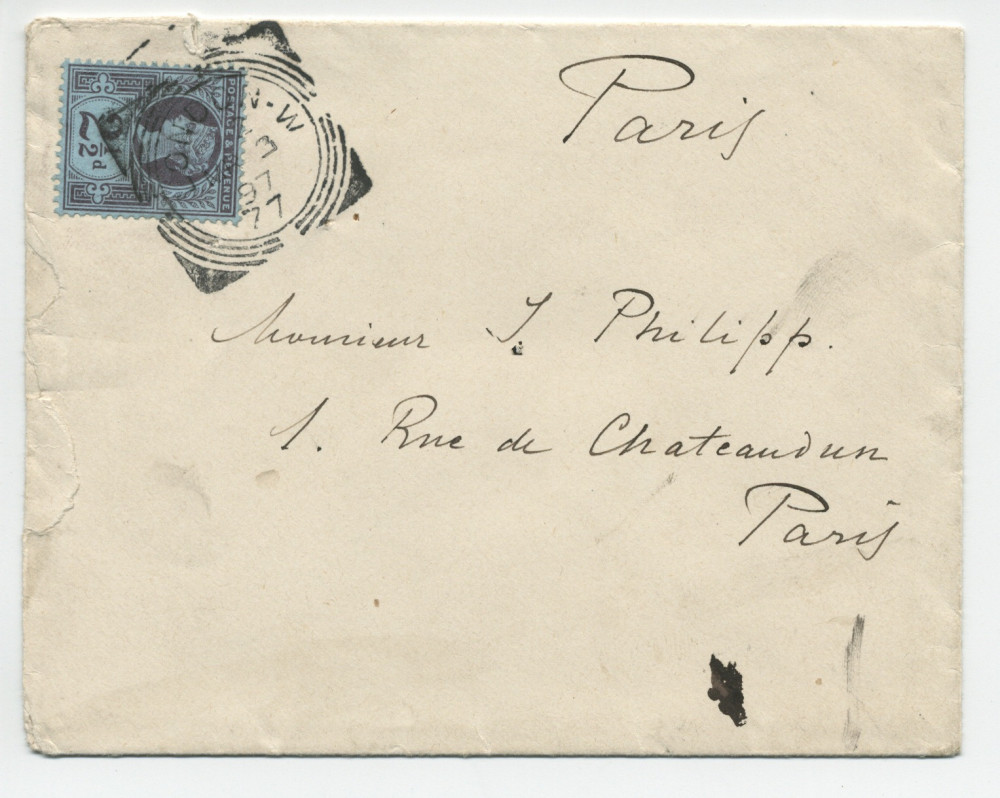 POSTAGE & REVENUE
2½d
LONDON-W
97
77
Paris
Monsieur I. Philipp.
1. Rue de Chateaudun
Paris